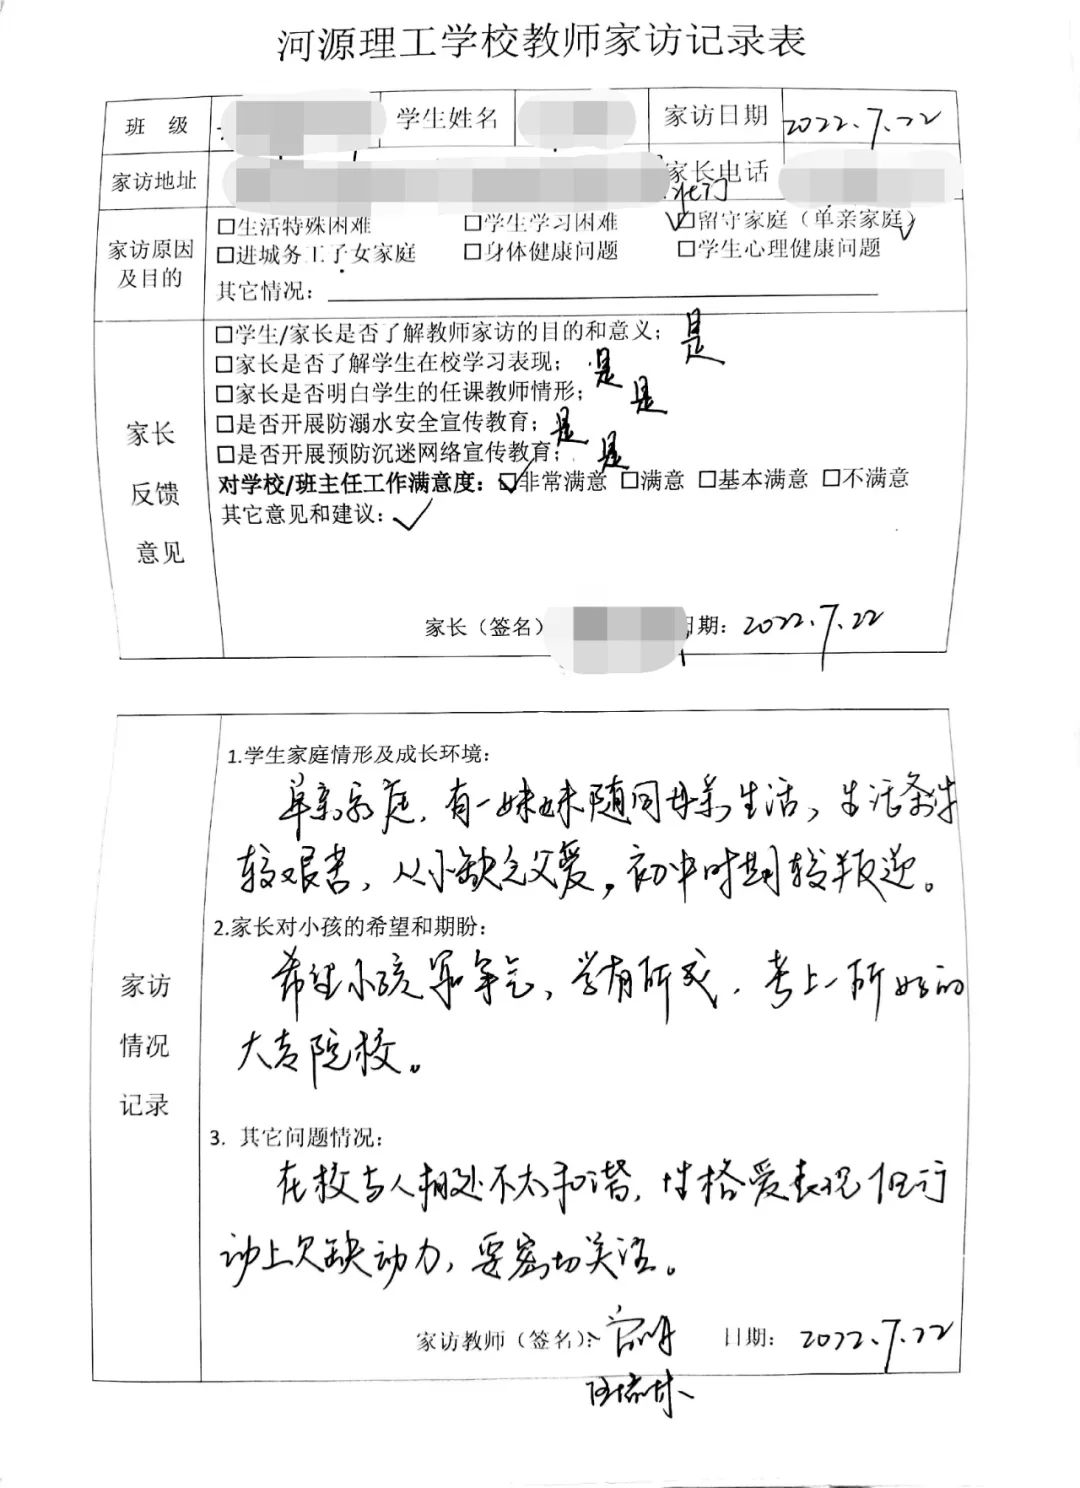 河源理工学校教师家访记录表
班 级 学生姓名 家访日期 2022.7.22
家访地址 家长电话
家访原因及目的
□生活特殊困难 □学生学习困难 ☑留守家庭（单亲家庭）✓
□进城务工子女家庭 □身体健康问题 □学生心理健康问题
其它情况：
家长反馈意见
□学生/家长是否了解教师家访的目的和意义； 是
□家长是否了解学生在校学习表现； 是
□家长是否明白学生的任课教师情形； 是
□是否开展防溺水安全宣传教育； 是
□是否开展预防沉迷网络宣传教育； 是
对学校/班主任工作满意度：☑非常满意 □满意 □基本满意 □不满意
其它意见和建议：✓
家长（签名） 日期：2022.7.22
家访情况记录
1.学生家庭情形及成长环境：
单亲家庭，有一妹妹随同母亲生活，生活条件
较艰苦，从小缺乏父爱，初中时期较叛逆。
2.家长对小孩的希望和期盼：
希望小孩争气，学有所成，考上一所好的
大专院校。
3. 其它问题情况：
在校与人相处不太和谐，性格爱表现但行
动上欠缺动力，要密切关注。
家访教师（签名）： 日期： 2022.7.22